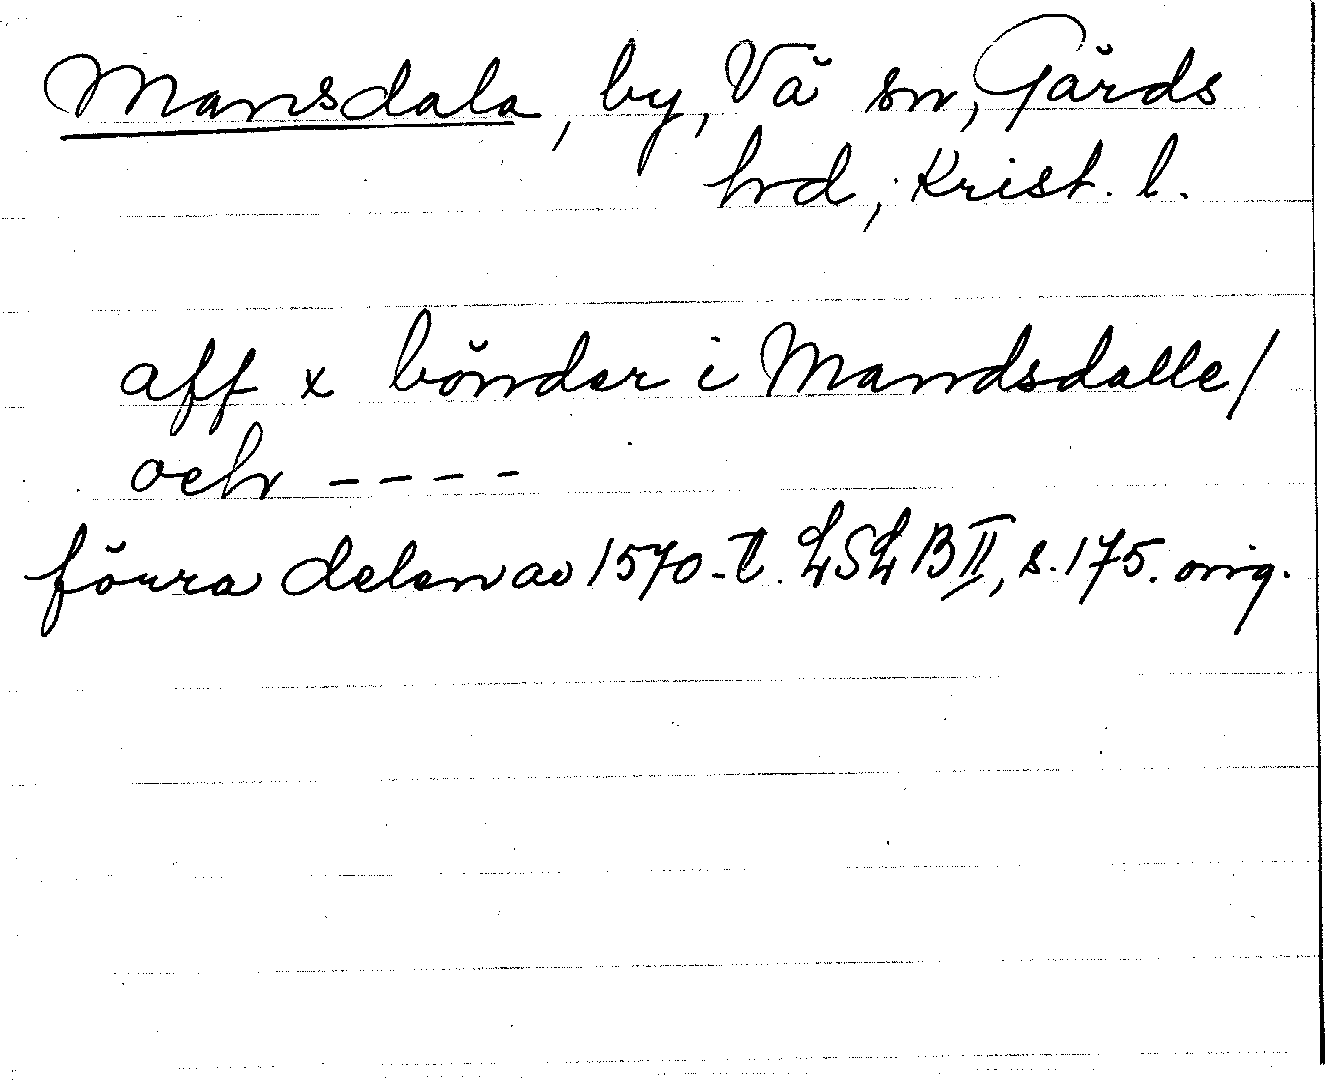 Mansdala, by, Vä sn, Gärds
hrd, Krist. l.
aff x bönder i Mandsdalle/
och ----
förra delen av 1570-t. LSL B II, s. 175. orig.